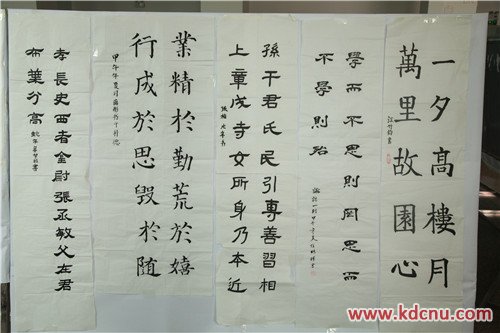 一夕高樓月
萬里故園心
學而不思則罔思而
不學則殆
孫于君氏民引專善習相
上章成寺女所身乃本近
業精於勤荒於嬉
行成於思毀於随
孝長史西者金尉張丞敎父左君
布葉分高
www.kdcnu.com